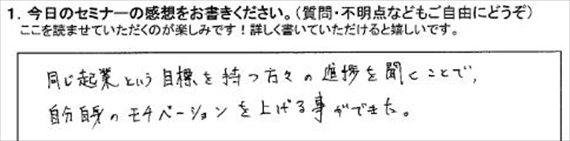 1. 今日のセミナーの感想をお書きください。（質問・不明点などもご自由にどうぞ）
ここを読ませていただくのが楽しみです！詳しく書いていただけると嬉しいです。
同じ起業という目標を持つ方々の進捗を聞くことで、
自分自身のモチベーションを上げる事ができた。